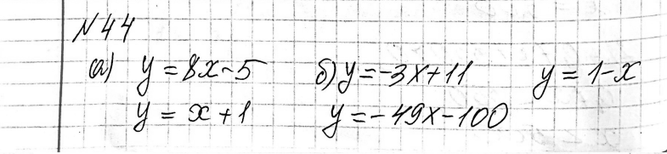 N44
а) y = 8x - 5 б) y = -3x + 11 y = 1 - x
y = x + 1 y = -49x - 100